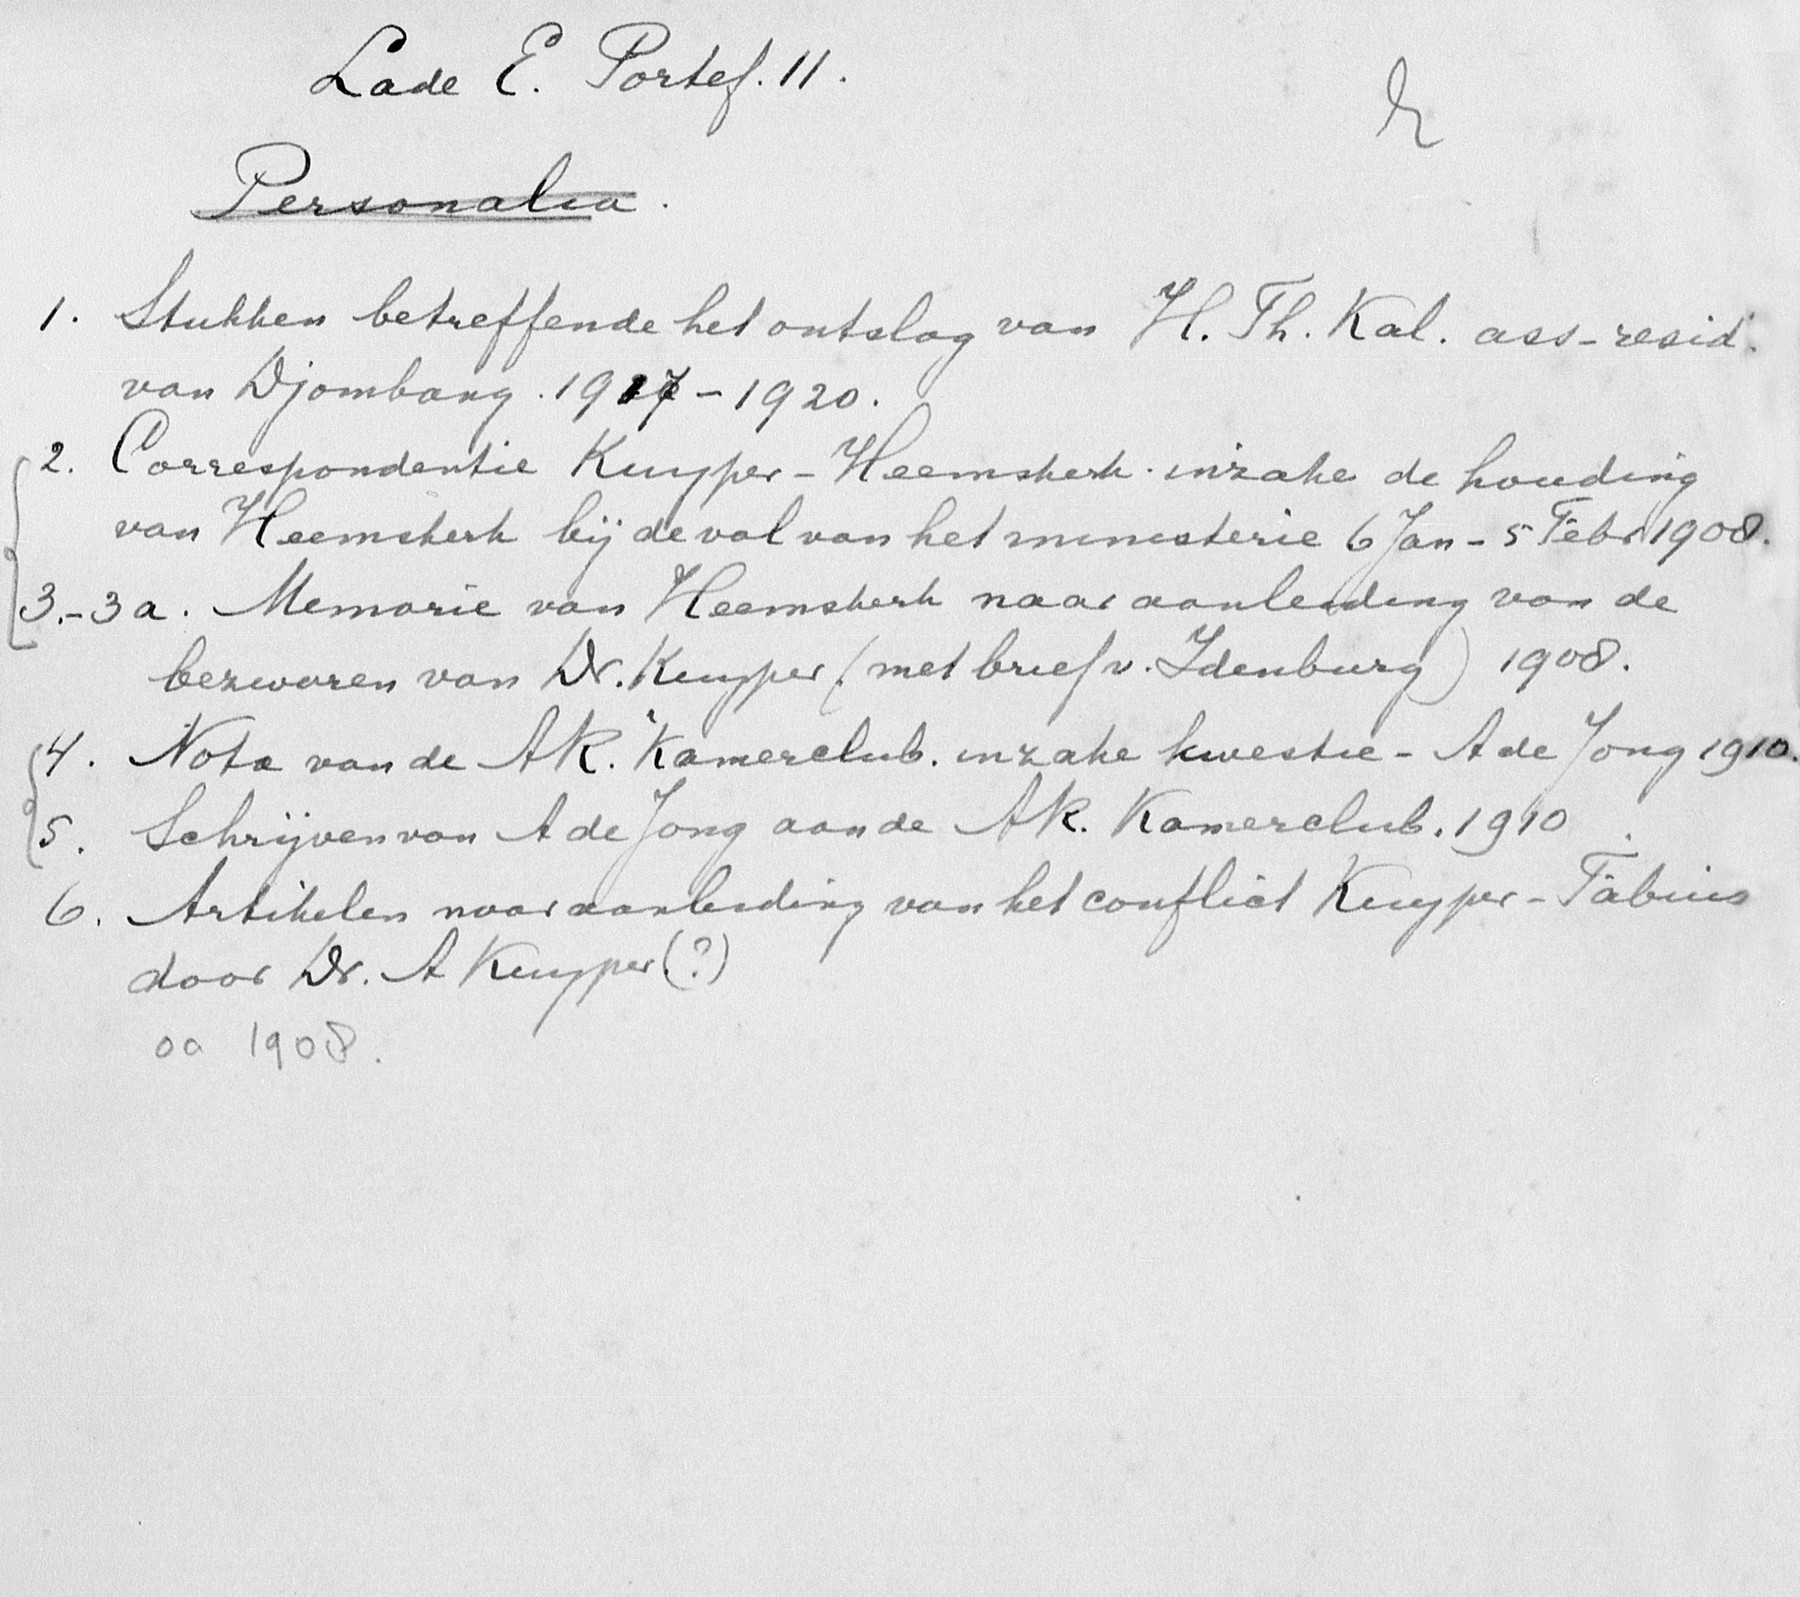 Lade E. Portef. 11.
Personalia.
1. Stukken betreffende het ontslag van H. Th. Kal. ass-resid.
van Djombang. 1917-1920.
2. Correspondentie Kuyper-Heemskerk. inzake de houding
van Heemskerk bij de val van het ministerie 6 Jan-5 Febr 1908.
3.-3a. Memorie van Heemskerk naar aanleiding van de
bezwaren van Dr. Kuyper (met brief v. Idenburg) 1908.
4. Nota van de AR. Kamerclub. inzake kwestie-A de Jong 1910.
5. Schrijven van A de Jong aan de AR. Kamerclub. 1910.
6. Artikelen naar aanleiding van het conflict Kuyper-Fabius
door Dr. A Kuyper (?)
oa 1908.